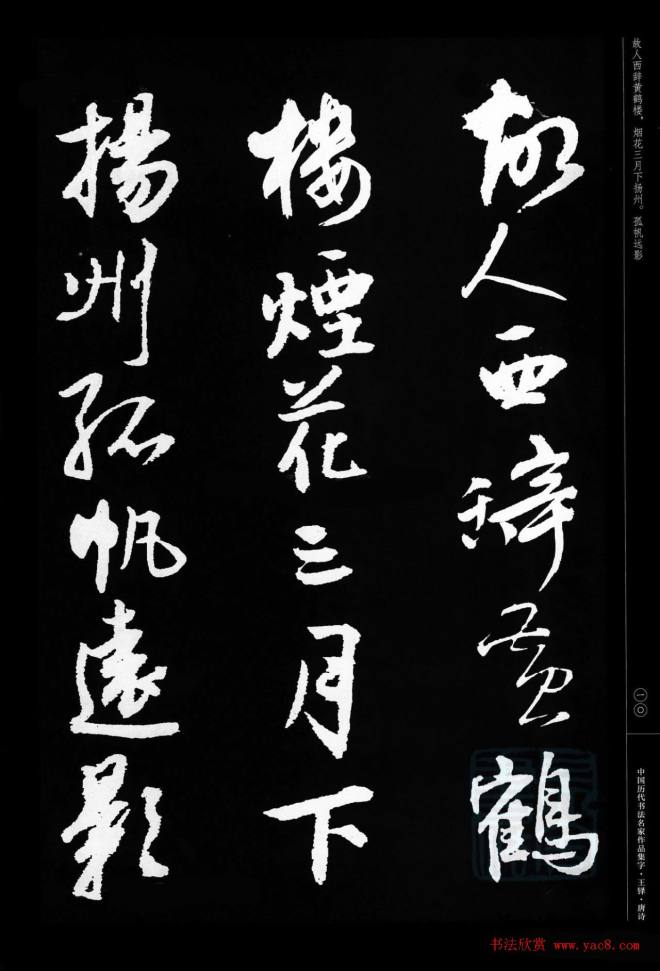 故人西辞黄鹤楼，烟花三月下扬州。孤帆远影
故人西辭黄鶴
楼煙花三月下
揚州孤帆遠影
一〇
中国历代书法名家作品集字·王铎·唐诗
书法欣赏 www.yac8.com